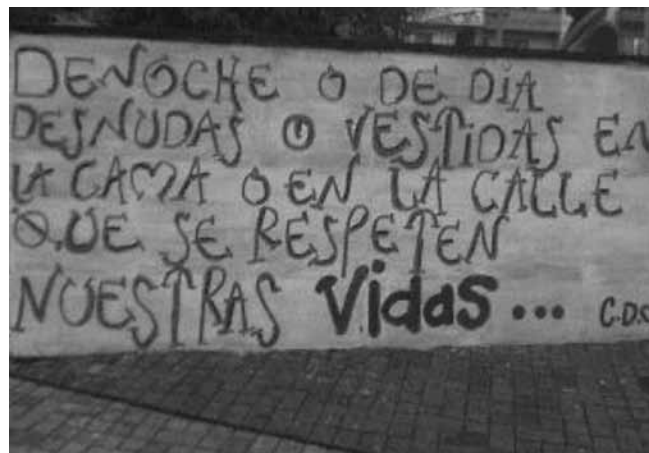 DENOCHE O DE DíA
DESNUDAS O VESTiDAS EN
LA CAMA O EN LA CALLE
QUE SE RESPETEN
NUESTRAS Vidas... C.D.C